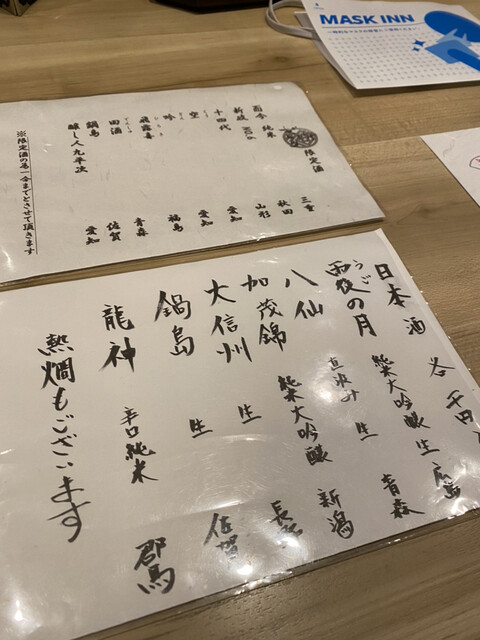 MASK INN
限定酒
而今 純米 三重
新政 秋田
十四代 山形
空 愛知
吟 愛知
飛露喜 福島
田酒 青森
鍋島 佐賀
醸し人九平次 愛知
※限定酒の為一合までとさせて頂きます
日本酒 各 千円
雨後の月 純米大吟醸 生 広島
うご
八仙 直汲み 生 青森
加茂錦 純米大吟醸 新潟
大信州 生 長野
鍋島 生 佐賀
龍神 辛口純米 郡馬
熱燗もございます